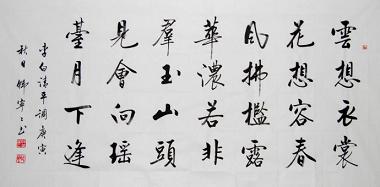 雲想衣裳
花想容春
風拂檻露
華濃若非
羣玉山頭
見會向瑶
臺月下逢
李白清平調庚寅
秋日